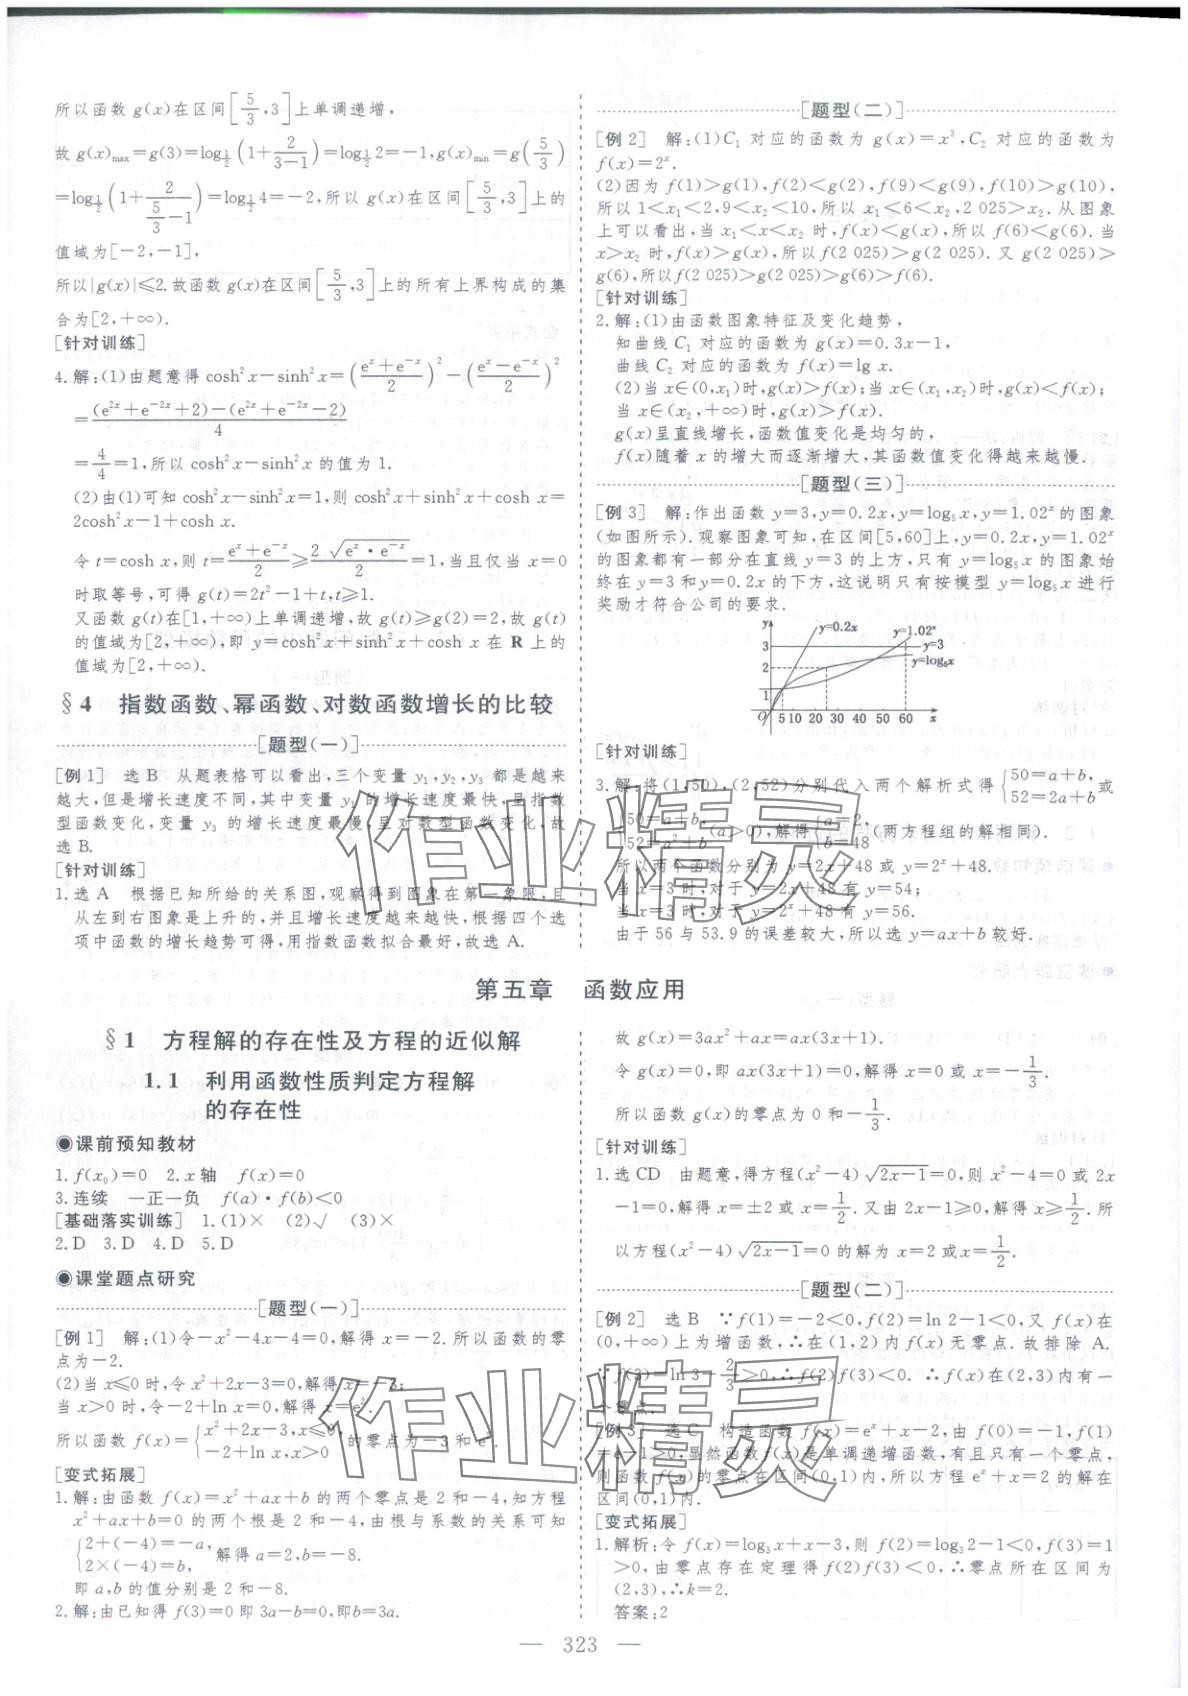 所以函数 g(x)在区间[5/3,3]上单调递增,
故 g(x)max=g(3)=log_{1/2}(1+2/(3-1))=log_{1/2}2=-1,g(x)min=g(5/3)
=log_{1/2}(1+2/(5/3-1))=log_{1/2}4=-2,所以 g(x)在区间[5/3,3]上的
值域为[-2,-1],
所以|g(x)|≤2.故函数 g(x)在区间[5/3,3]上的所有上界构成的集
合为[2,+∞).
[针对训练]
4.解:(1)由题意得 cosh²x-sinh²x=((e^x+e^{-x})/2)²-((e^x-e^{-x})/2)²
=((e^{2x}+e^{-2x}+2)-(e^{2x}+e^{-2x}-2))/4
=4/4=1,所以 cosh²x-sinh²x 的值为 1.
(2)由(1)可知 cosh²x-sinh²x=1,则 cosh²x+sinh²x+cosh x=
2cosh²x-1+cosh x.
令 t=cosh x,则 t=(e^x+e^{-x})/2≥(2√(e^x·e^{-x}))/2=1,当且仅当 x=0
时取等号,可得 g(t)=2t²-1+t,t≥1.
又函数 g(t)在[1,+∞)上单调递增,故 g(t)≥g(2)=2,故 g(t)
的值域为[2,+∞),即 y=cosh²x+sinh²x+cosh x 在 R 上的
值域为[2,+∞).
§4 指数函数、幂函数、对数函数增长的比较
[题型(一)]
[例1] 选 B 从题表格可以看出,三个变量 y₁,y₂,y₃ 都是越来
越大,但是增长速度不同,其中变量 y₁ 的增长速度最快,呈指数
型函数变化,变量 y₃ 的增长速度最慢,呈对数型函数变化,故
选 B.
[针对训练]
1.选 A 根据已知所给的关系图,观察得到图象在第一象限,且
从左到右图象是上升的,并且增长速度越来越快,根据四个选
项中函数的增长趋势可得,用指数函数拟合最好,故选 A.
[题型(二)]
[例2] 解:(1)C₁ 对应的函数为 g(x)=x³,C₂ 对应的函数为
f(x)=2^x.
(2)因为 f(1)>g(1),f(2)<g(2),f(9)<g(9),f(10)>g(10),
所以 1<x₁<2,9<x₂<10,所以 x₁<6<x₂,2 025>x₂.从图象
上可以看出,当 x₁<x<x₂ 时,f(x)<g(x),所以 f(6)<g(6).当
x>x₂ 时,f(x)>g(x),所以 f(2 025)>g(2 025).又 g(2 025)>
g(6),所以 f(2 025)>g(2 025)>g(6)>f(6).
[针对训练]
2.解:(1)由函数图象特征及变化趋势,
知曲线 C₁ 对应的函数为 g(x)=0.3x-1,
曲线 C₂ 对应的函数为 f(x)=lg x.
(2)当 x∈(0,x₁)时,g(x)>f(x);当 x∈(x₁,x₂)时,g(x)<f(x);
当 x∈(x₂,+∞)时,g(x)>f(x).
g(x)呈直线增长,函数值变化是均匀的,
f(x)随着 x 的增大而逐渐增大,其函数值变化得越来越慢.
[题型(三)]
[例3] 解:作出函数 y=3,y=0.2x,y=log₅x,y=1.02^x 的图象
(如图所示).观察图象可知,在区间[5,60]上,y=0.2x,y=1.02^x
的图象都有一部分在直线 y=3 的上方,只有 y=log₅x 的图象始
终在 y=3 和 y=0.2x 的下方,这说明只有按模型 y=log₅x 进行
奖励才符合公司的要求.
y y=0.2x y=1.02^x
3 y=3
2 y=log₅x
1
O 5 10 20 30 40 50 60 x
[针对训练]
3.解:将(1,50),(2,52)分别代入两个解析式得{50=a+b, 52=2a+b 或
{50=a+b, 52=a²+b (a>0),解得{a=2, b=48 (两方程组的解相同).
所以两个函数分别为 y=2x+48 或 y=2^x+48.
当 x=3 时,对于 y=2x+48 有 y=54;
当 x=3 时,对于 y=2^x+48 有 y=56.
由于 56 与 53.9 的误差较大,所以选 y=ax+b 较好.
第五章 函数应用
§1 方程解的存在性及方程的近似解
1.1 利用函数性质判定方程解
的存在性
◉课前预知教材
1.f(x₀)=0 2.x 轴 f(x)=0
3.连续 一正一负 f(a)·f(b)<0
[基础落实训练] 1.(1)× (2)√ (3)×
2.D 3.D 4.D 5.D
◉课堂题点研究
[题型(一)]
[例1] 解:(1)令-x²-4x-4=0,解得 x=-2.所以函数的零
点为-2.
(2)当 x≤0 时,令 x²+2x-3=0,解得 x=-3;
当 x>0 时,令-2+ln x=0,解得 x=e².
所以函数 f(x)={x²+2x-3,x≤0, -2+ln x,x>0 的零点为-3 和 e².
[变式拓展]
1.解:由函数 f(x)=x²+ax+b 的两个零点是 2 和-4,知方程
x²+ax+b=0 的两个根是 2 和-4,由根与系数的关系可知
{2+(-4)=-a, 2×(-4)=b, 解得 a=2,b=-8.
即 a,b 的值分别是 2 和-8.
2.解:由已知得 f(3)=0 即 3a-b=0,即b=3a.
故 g(x)=3ax²+ax=ax(3x+1).
令 g(x)=0,即 ax(3x+1)=0,解得 x=0 或 x=-1/3.
所以函数 g(x)的零点为 0 和-1/3.
[针对训练]
1.选 CD 由题意,得方程(x²-4)√(2x-1)=0,则 x²-4=0 或 2x
-1=0,解得 x=±2 或 x=1/2.又由 2x-1≥0,解得 x≥1/2.所
以方程(x²-4)√(2x-1)=0 的解为 x=2 或x=1/2.
[题型(二)]
[例2] 选 B ∵f(1)=-2<0,f(2)=ln 2-1<0,又 f(x)在
(0,+∞)上为增函数,∴在(1,2)内 f(x)无零点.故排除 A.
∵f(3)=ln 3-2/3>0,∴f(2)f(3)<0.∴f(x)在(2,3)内有一
个零点.
[例3] 选 C 构造函数 f(x)=e^x+x-2,由 f(0)=-1,f(1)
=e-1>0,显然函数 f(x)是单调递增函数,有且只有一个零点,
则函数 f(x)的零点在区间(0,1)内,所以方程 e^x+x=2 的解在
区间(0,1)内.
[变式拓展]
1.解析:令 f(x)=log₃x+x-3,则 f(2)=log₃2-1<0,f(3)=1
>0,由零点存在定理得 f(2)f(3)<0,∴零点所在区间为
(2,3),∴k=2.
答案:2
— 323 —
作业精灵
作业精灵